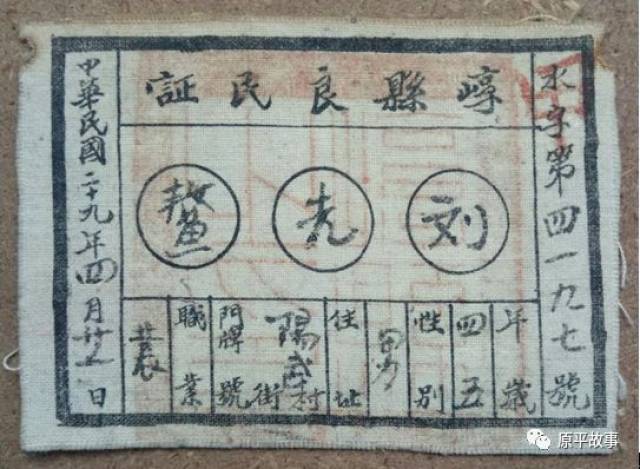 水字第四一九七號
崞縣良民証
刘先鰲
年歲 四五
性別 男
住址 陽武村 街
門牌 號
職業 農
中華民國二十九年四月廿五日
原平故事